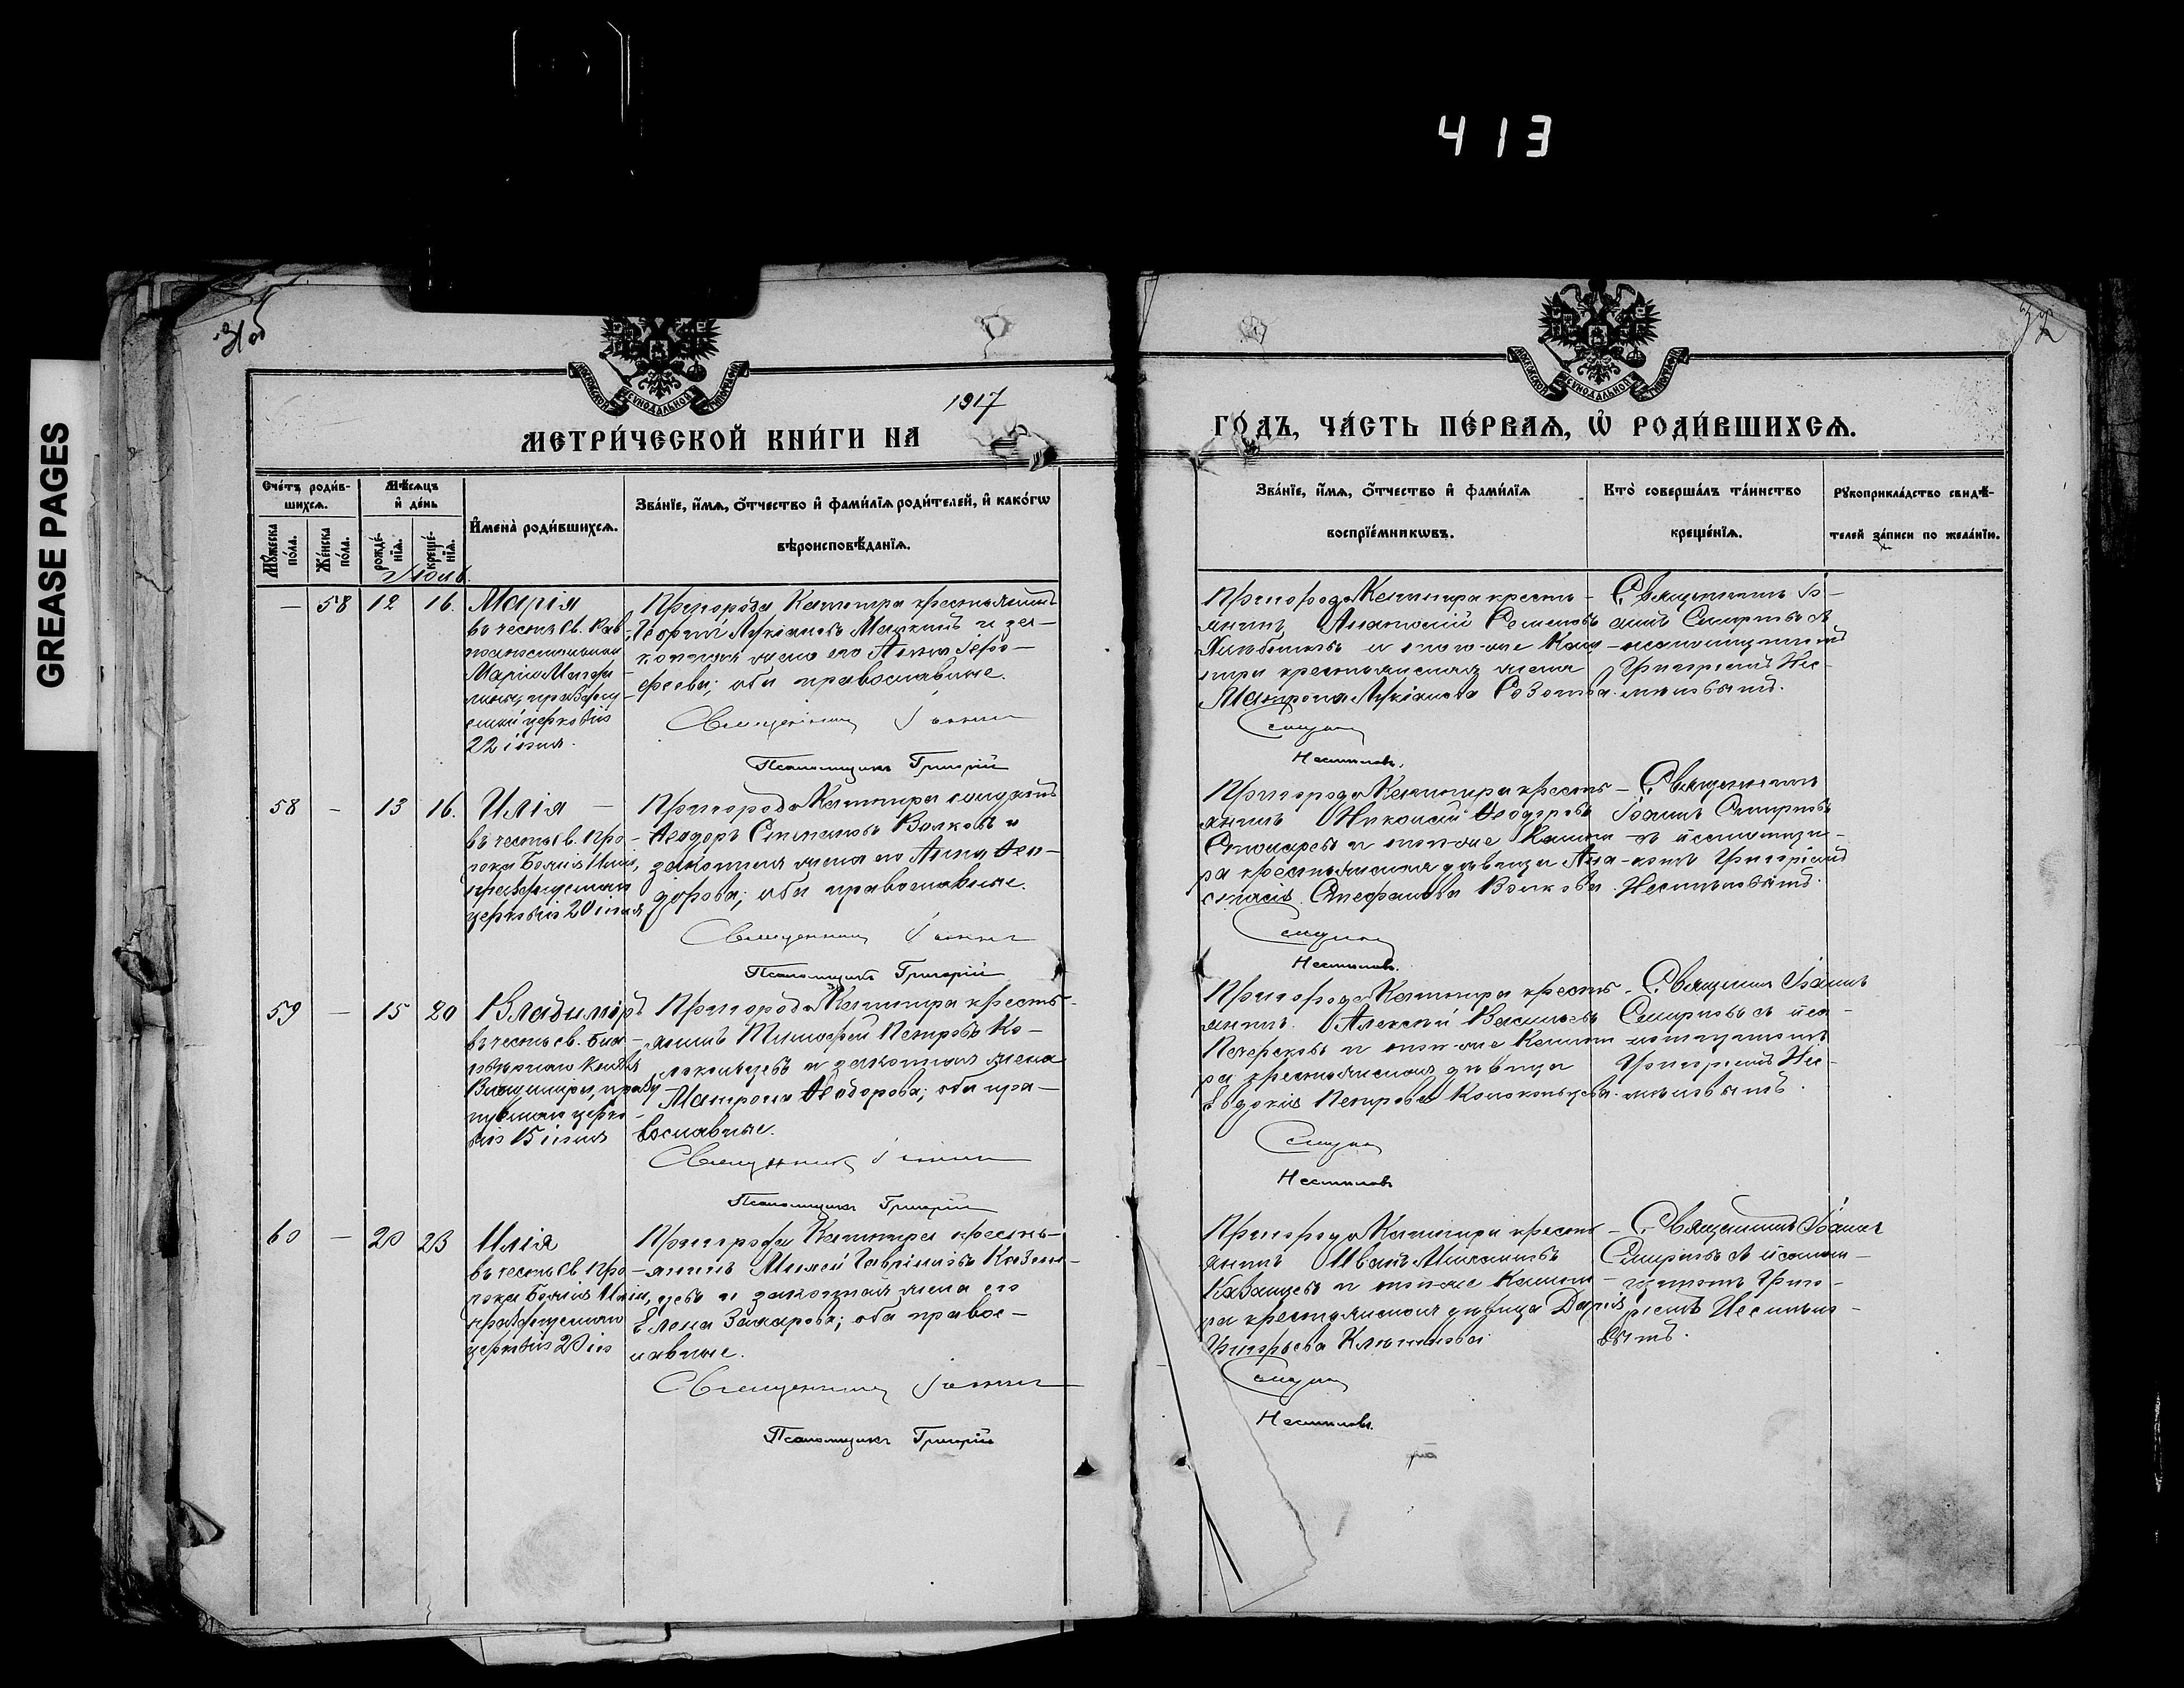 413
GREASE PAGES
1917
МЕТРИ́ЧЕСКОЙ КНИ́ГИ НА
ГО́ДЪ, ЧА́СТЬ ПЕ́РВАѦ, Ѡ҆ РОДИ́ВШИХСѦ.
Сче́тъ роди́в-
шихсѧ.
Мѣ́сѧцъ
и҆ де́нь
Мꙋ́жеска
по́ла.
Же́нска
по́ла.
рожде́-
нїѧ.
креще́-
нїѧ.
И҆мена̀ роди́вшихсѧ.
Зва́нїе, и҆́мѧ, ѻ҆́тчество и҆ фами́лїѧ роди́телей, и҆ како́гѡ
вѣроисповѣ́данїѧ.
Зва́нїе, и҆́мѧ, ѻ҆́тчество и҆ фами́лїѧ
воспрїе́мникѡвъ.
Кто̀ соверша́лъ та́инство
креще́нїѧ.
Рꙋкоприкла́дство свидѣ́-
телей за́писи по жела́нїю.
Іюль.
— 58 12 16. Марія
въ честь св. Рав-
ноапостольной
Маріи Магда-
лины, праздну-
емой церковію
22 іюля.
Пригорода Каштыра крестьянинъ
Георгій Лукіановъ и за-
конная жена его Анна
оба православные.
Священникъ Іоаннъ
Псаломщикъ Григорій
Пригорода Каштыра кресть-
янинъ
и того-же Каш-
тыра крестьянская жена
Матрона Лукіанова
Священникъ Іо-
аннъ Смирновъ съ
псаломщикомъ
Григоріемъ Нес-
мѣловымъ.
Смирновъ
Несмѣловъ.
58 — 13 16. Илія
въ честь св. Про-
рока Божія Иліи,
празднуемаго
церковію 20 іюля
Пригорода Каштыра солдатъ
Ѳеодоръ Степановъ Волковъ и
законная жена его Анна Ѳео-
дорова; оба православные.
Священникъ Іоаннъ
Псаломщикъ Григорій
Пригорода Каштыра кресть-
янинъ Николай Ѳеодоровъ
и того-же Кашты-
ра крестьянская дѣвица Ана-
стасія Стефанова Волкова.
Священникъ
Іоаннъ Смирновъ
съ псаломщи-
комъ Григоріемъ
Несмѣловымъ.
Смирновъ
Несмѣловъ.
59 — 15 20 Владиміръ
въ честь св. бла-
говѣрнаго Князя
Владиміра, празд-
нуемаго церко-
вію 15 іюля
Пригорода Каштыра кресть-
янинъ Тимофей Петровъ Ко-
локольцевъ и законная жена
Матрона Ѳеодорова; оба пра-
вославные.
Священникъ Іоаннъ
Псаломщикъ Григорій
Пригорода Каштыра кресть-
янинъ Алексій Васильевъ
Печерсковъ и того-же Кашты-
ра крестьянская дѣвица
Евдокія Петрова Колокольцева.
Священникъ Іоаннъ
Смирновъ съ псал-
омщикомъ
Григоріемъ Нес-
мѣловымъ.
Смирновъ
Несмѣловъ
60 — 20 23 Илія
въ честь св. Про-
рока Божія Иліи,
празднуемаго
церковію 20 іюля
Пригорода Каштыра кресть-
янинъ Гавріиловъ Казан-
цевъ и законная жена его
Елена Захарова; оба правос-
лавные.
Священникъ Іоаннъ
Псаломщикъ Григорій
Пригорода Каштыра кресть-
янинъ Иванъ Михаиловъ
Казанцевъ и того-же Кашты-
ра крестьянская дѣвица Дарія
Григорьева
Священникъ Іоаннъ
Смирновъ съ псалом-
щикомъ Григо-
ріемъ Несмѣло-
вымъ.
Смирновъ
Несмѣловъ.